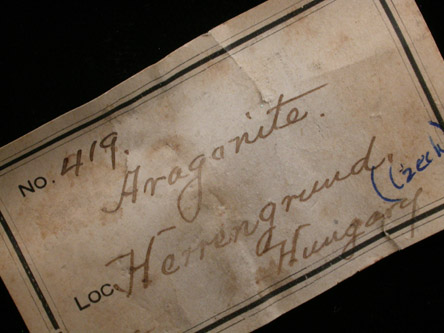 NO. 419.
Aragonite.
LOC. Herrengrund.
(Czech)
Hungary